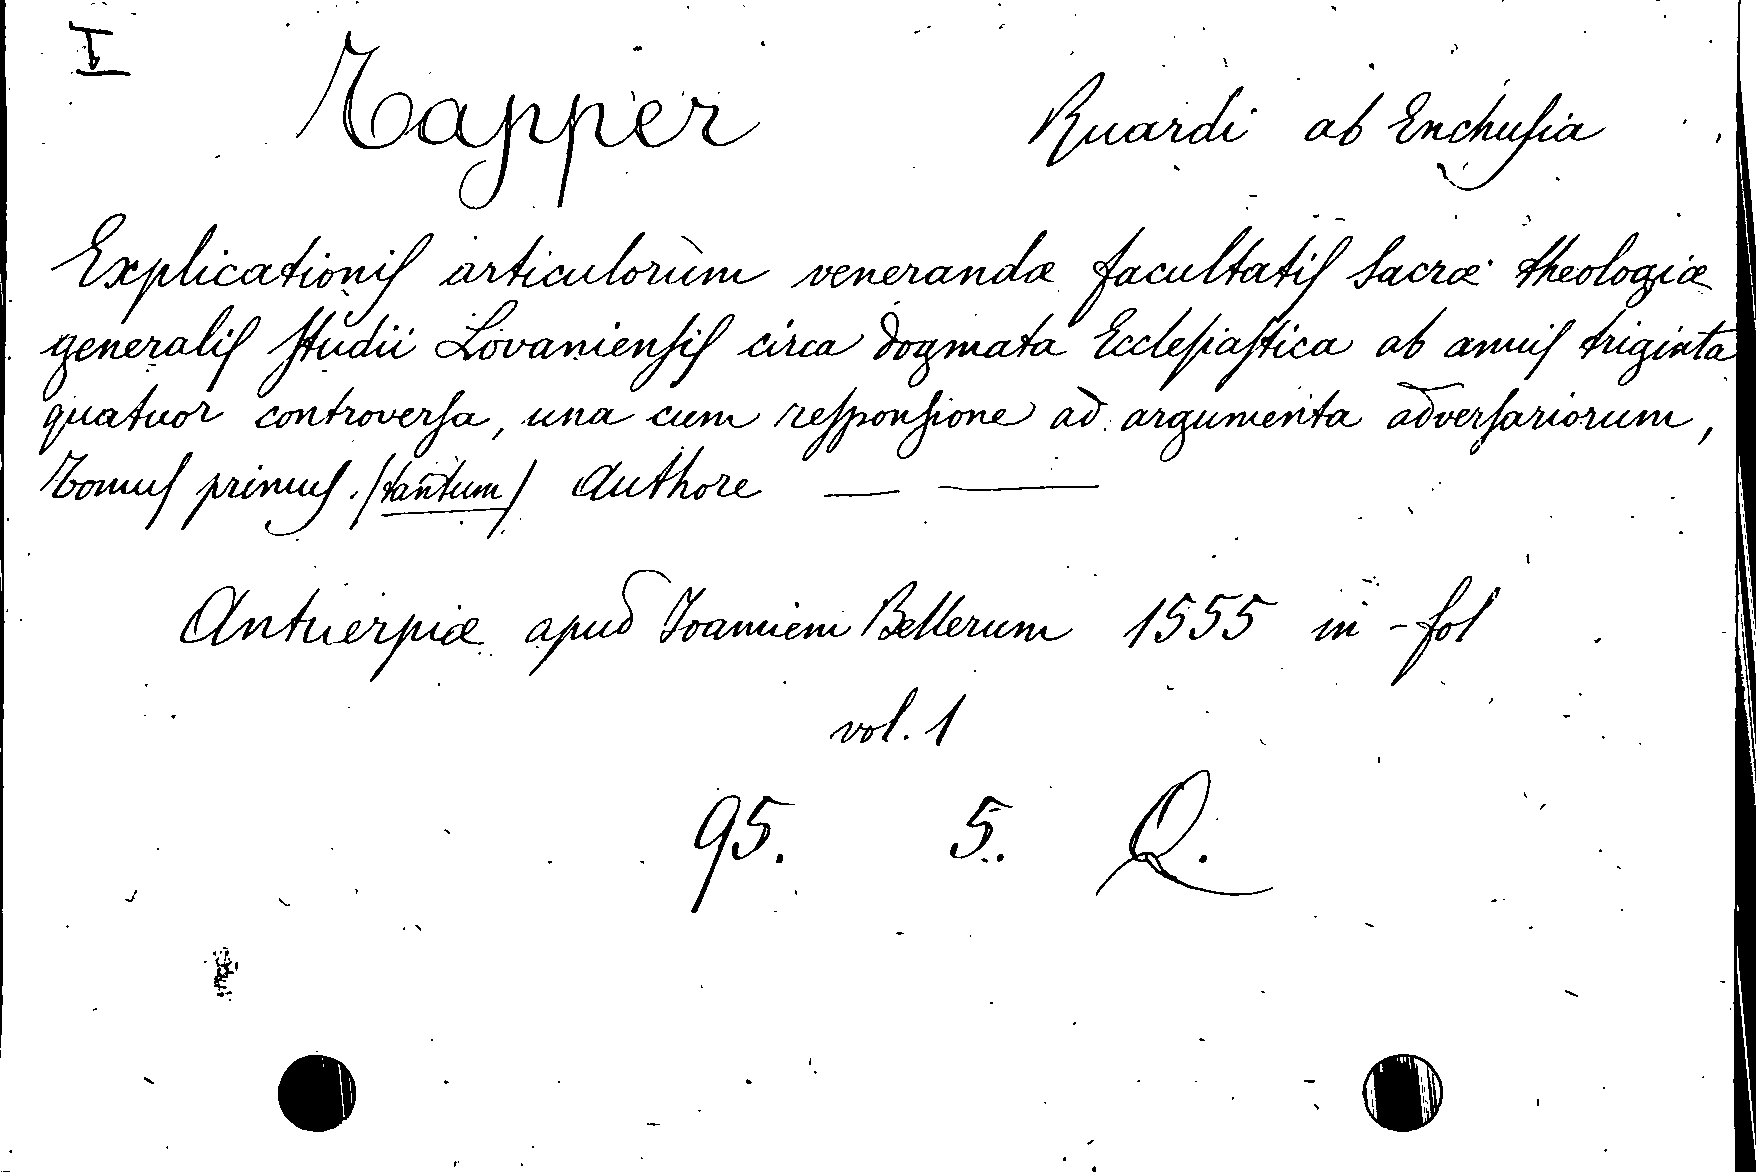 I
Tapper Ruardi ab Enchusia
Explicationis articulorum venerandæ facultatis sacræ theologiæ
generalis studii Lovaniensis circa dogmata Ecclesiastica ab annis triginta
quatuor controversa, una cum responsione ad argumenta adversariorum,
Tomus primus. (tantum) Authore — —
Antuerpiæ apud Joannem Bellerum 1555 in-fol
vol. 1
95. 5. Q.